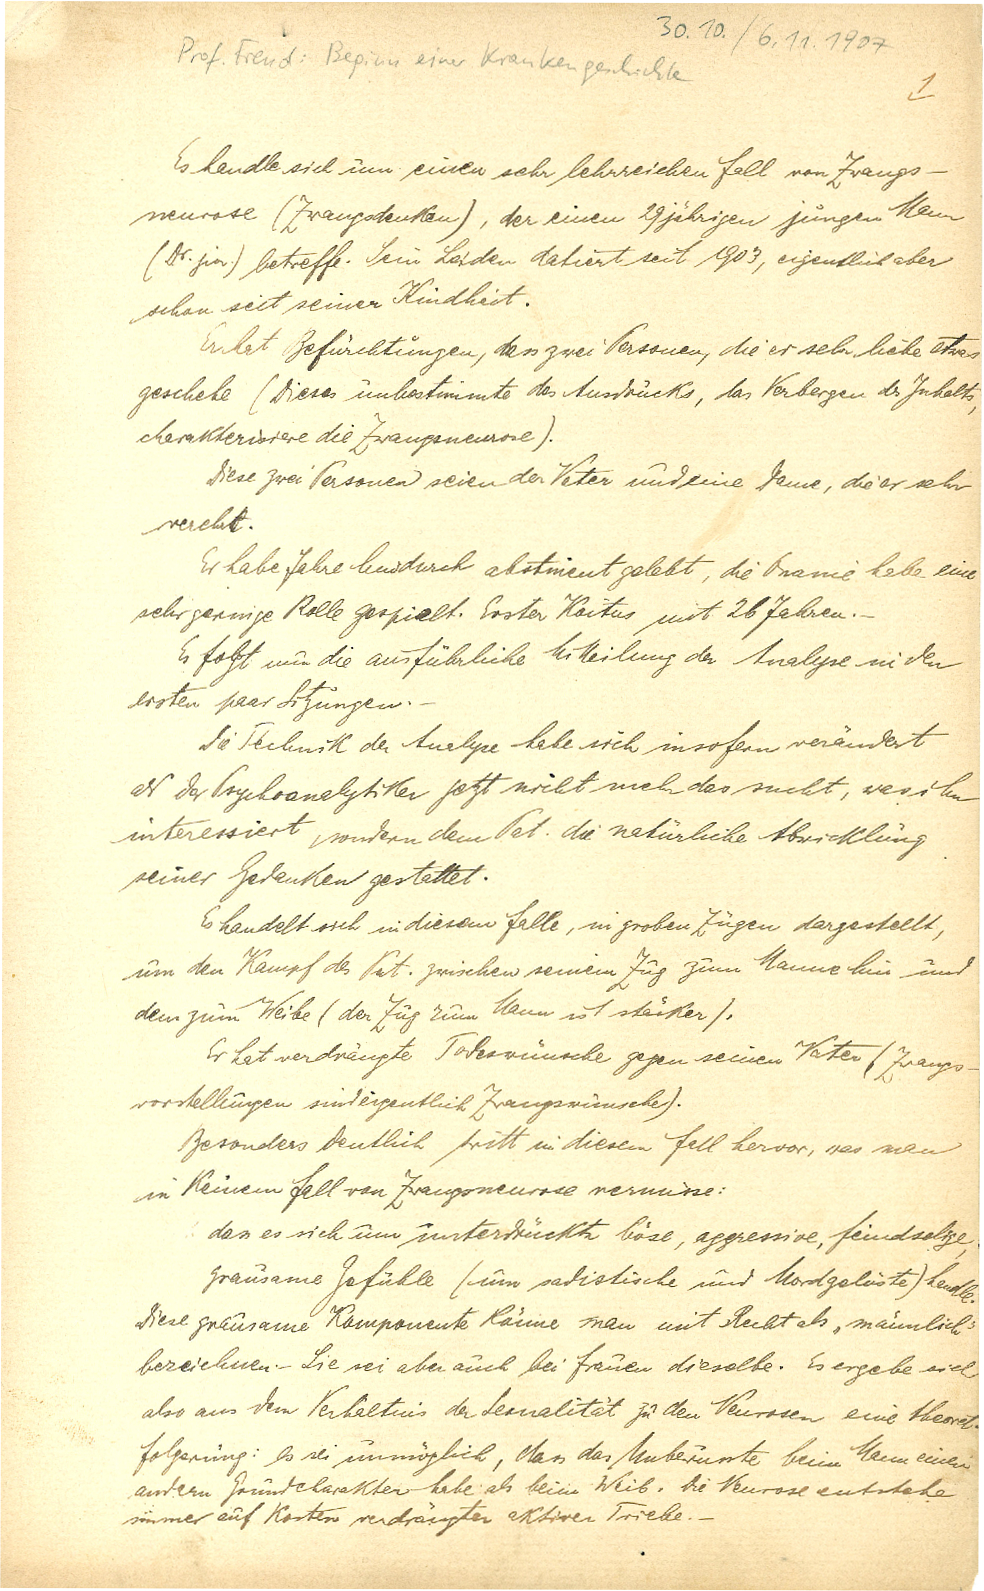 30.10./6.11.1907
Prof. Freud: Beginn einer Krankengeschichte
1
Es handle sich um einen sehr lehrreichen Fall von Zwangs-
neurose (Zwangsdenken), der einen 29jährigen jungen Mann
(Dr. jur.) betreffe. Sein Leiden datiert seit 1903, eigentlich aber
schon seit seiner Kindheit.
Er hat Befürchtungen, dass zwei Personen, die er sehr liebe etwas
geschehe (dieses unbestimmte des Ausdrucks, das Verbergen des Inhalts,
charakterisiere die Zwangsneurose).
Diese zwei Personen seien der Vater und eine Dame, die er sehr
verehrt.
Er habe Jahre hindurch abstinent gelebt, die Onanie habe eine
sehr geringe Rolle gespielt. Erster Koitus mit 26 Jahren.-
Es folgt nun die ausführliche Mitteilung der Analyse in den
ersten paar Sitzungen.-
Die Technik der Analyse habe sich insofern verändert
als der Psychoanalytiker jetzt nicht mehr das sucht, was ihn
interessiert, sondern dem Pat. die natürliche Abwicklung
seiner Gedanken gestattet.
Es handelt sich in diesem Falle, in groben Zügen dargestellt,
um den Kampf des Pat. zwischen seinem Zug zum Manne hin und
dem zum Weibe (der Zug zum Mann ist stärker).
Er hat verdrängte Todeswünsche gegen seinen Vater (Zwangs-
vorstellungen sind eigentlich Zwangswünsche).
Besonders deutlich tritt in diesem Fall hervor, was man
in keinem Fall von Zwangsneurose vermisse:
dass es sich um unterdrückte böse, aggressive, feindselige,
grausame Gefühle (um sadistische und Mordgelüste) handle.
Diese grausame Komponente könne man mit Recht als „männlich"
bezeichnen.- Sie sei aber auch bei Frauen dieselbe. Es ergebe sich
also aus dem Verhältnis der Sexualität zu den Neurosen eine theoret.
Folgerung: es sei unmöglich, dass das Unbewusste beim Mann einen
andern Grundcharakter habe als beim Weib. Die Neurose entstehe
immer auf Kosten verdrängter aktiver Triebe.-